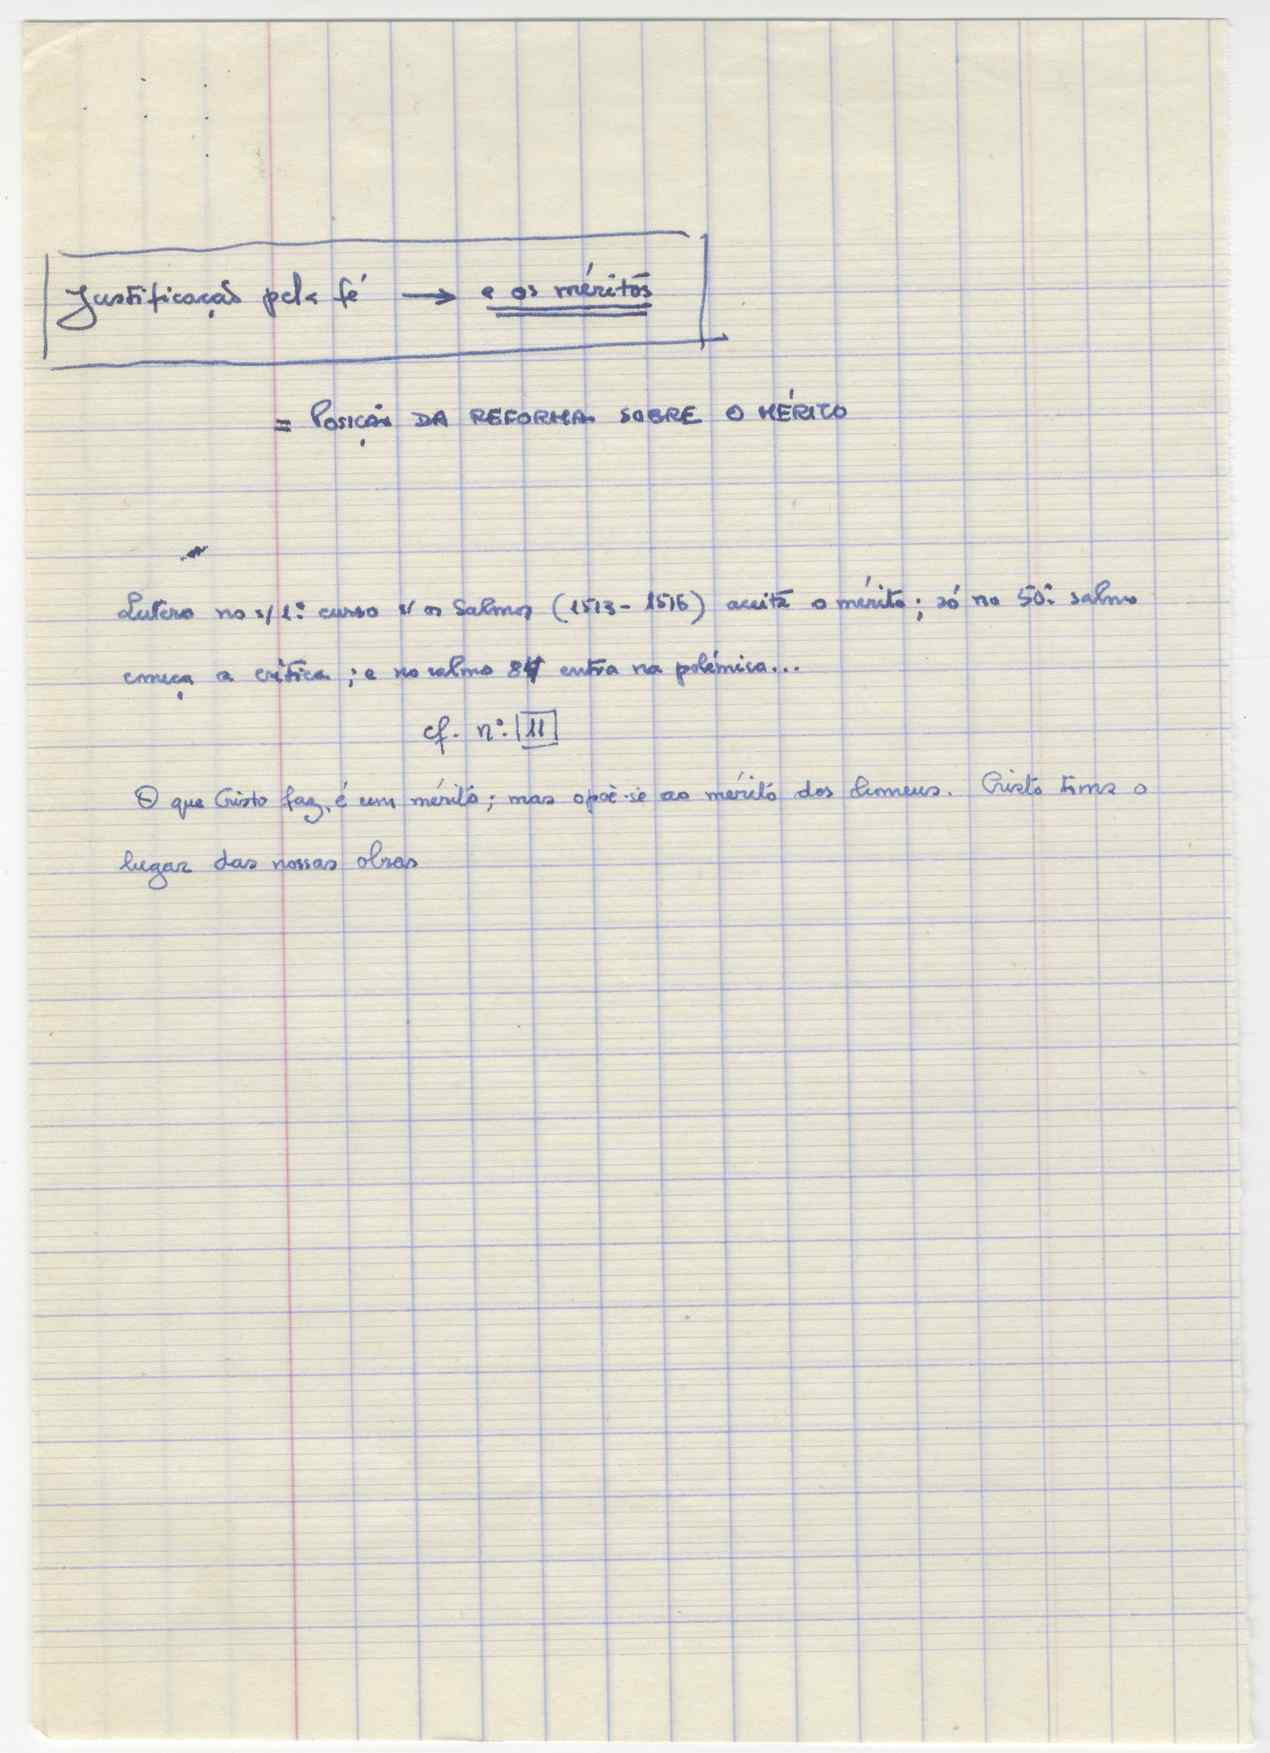 Justificação pela fé → e os méritos
= Posição DA REFORMA SOBRE O MÉRITO
Lutero no s/ 1º curso s/ os Salmos (1513-1516) aceita o mérito; só no 50º salmo
começa a crítica; e no salmo 84 entra na polémica...
cf. nº. 11
O que Cristo faz, é um mérito; mas opõe-se ao mérito dos homens. Cristo toma o
lugar das nossas obras